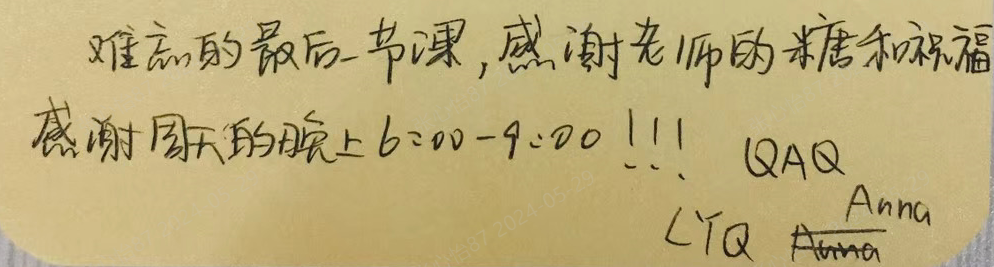 难忘的最后一节课,感谢老师的糖和祝福
感谢周天的晚上6:00-9:00!!!  QAQ
Anna
LYQ Anna